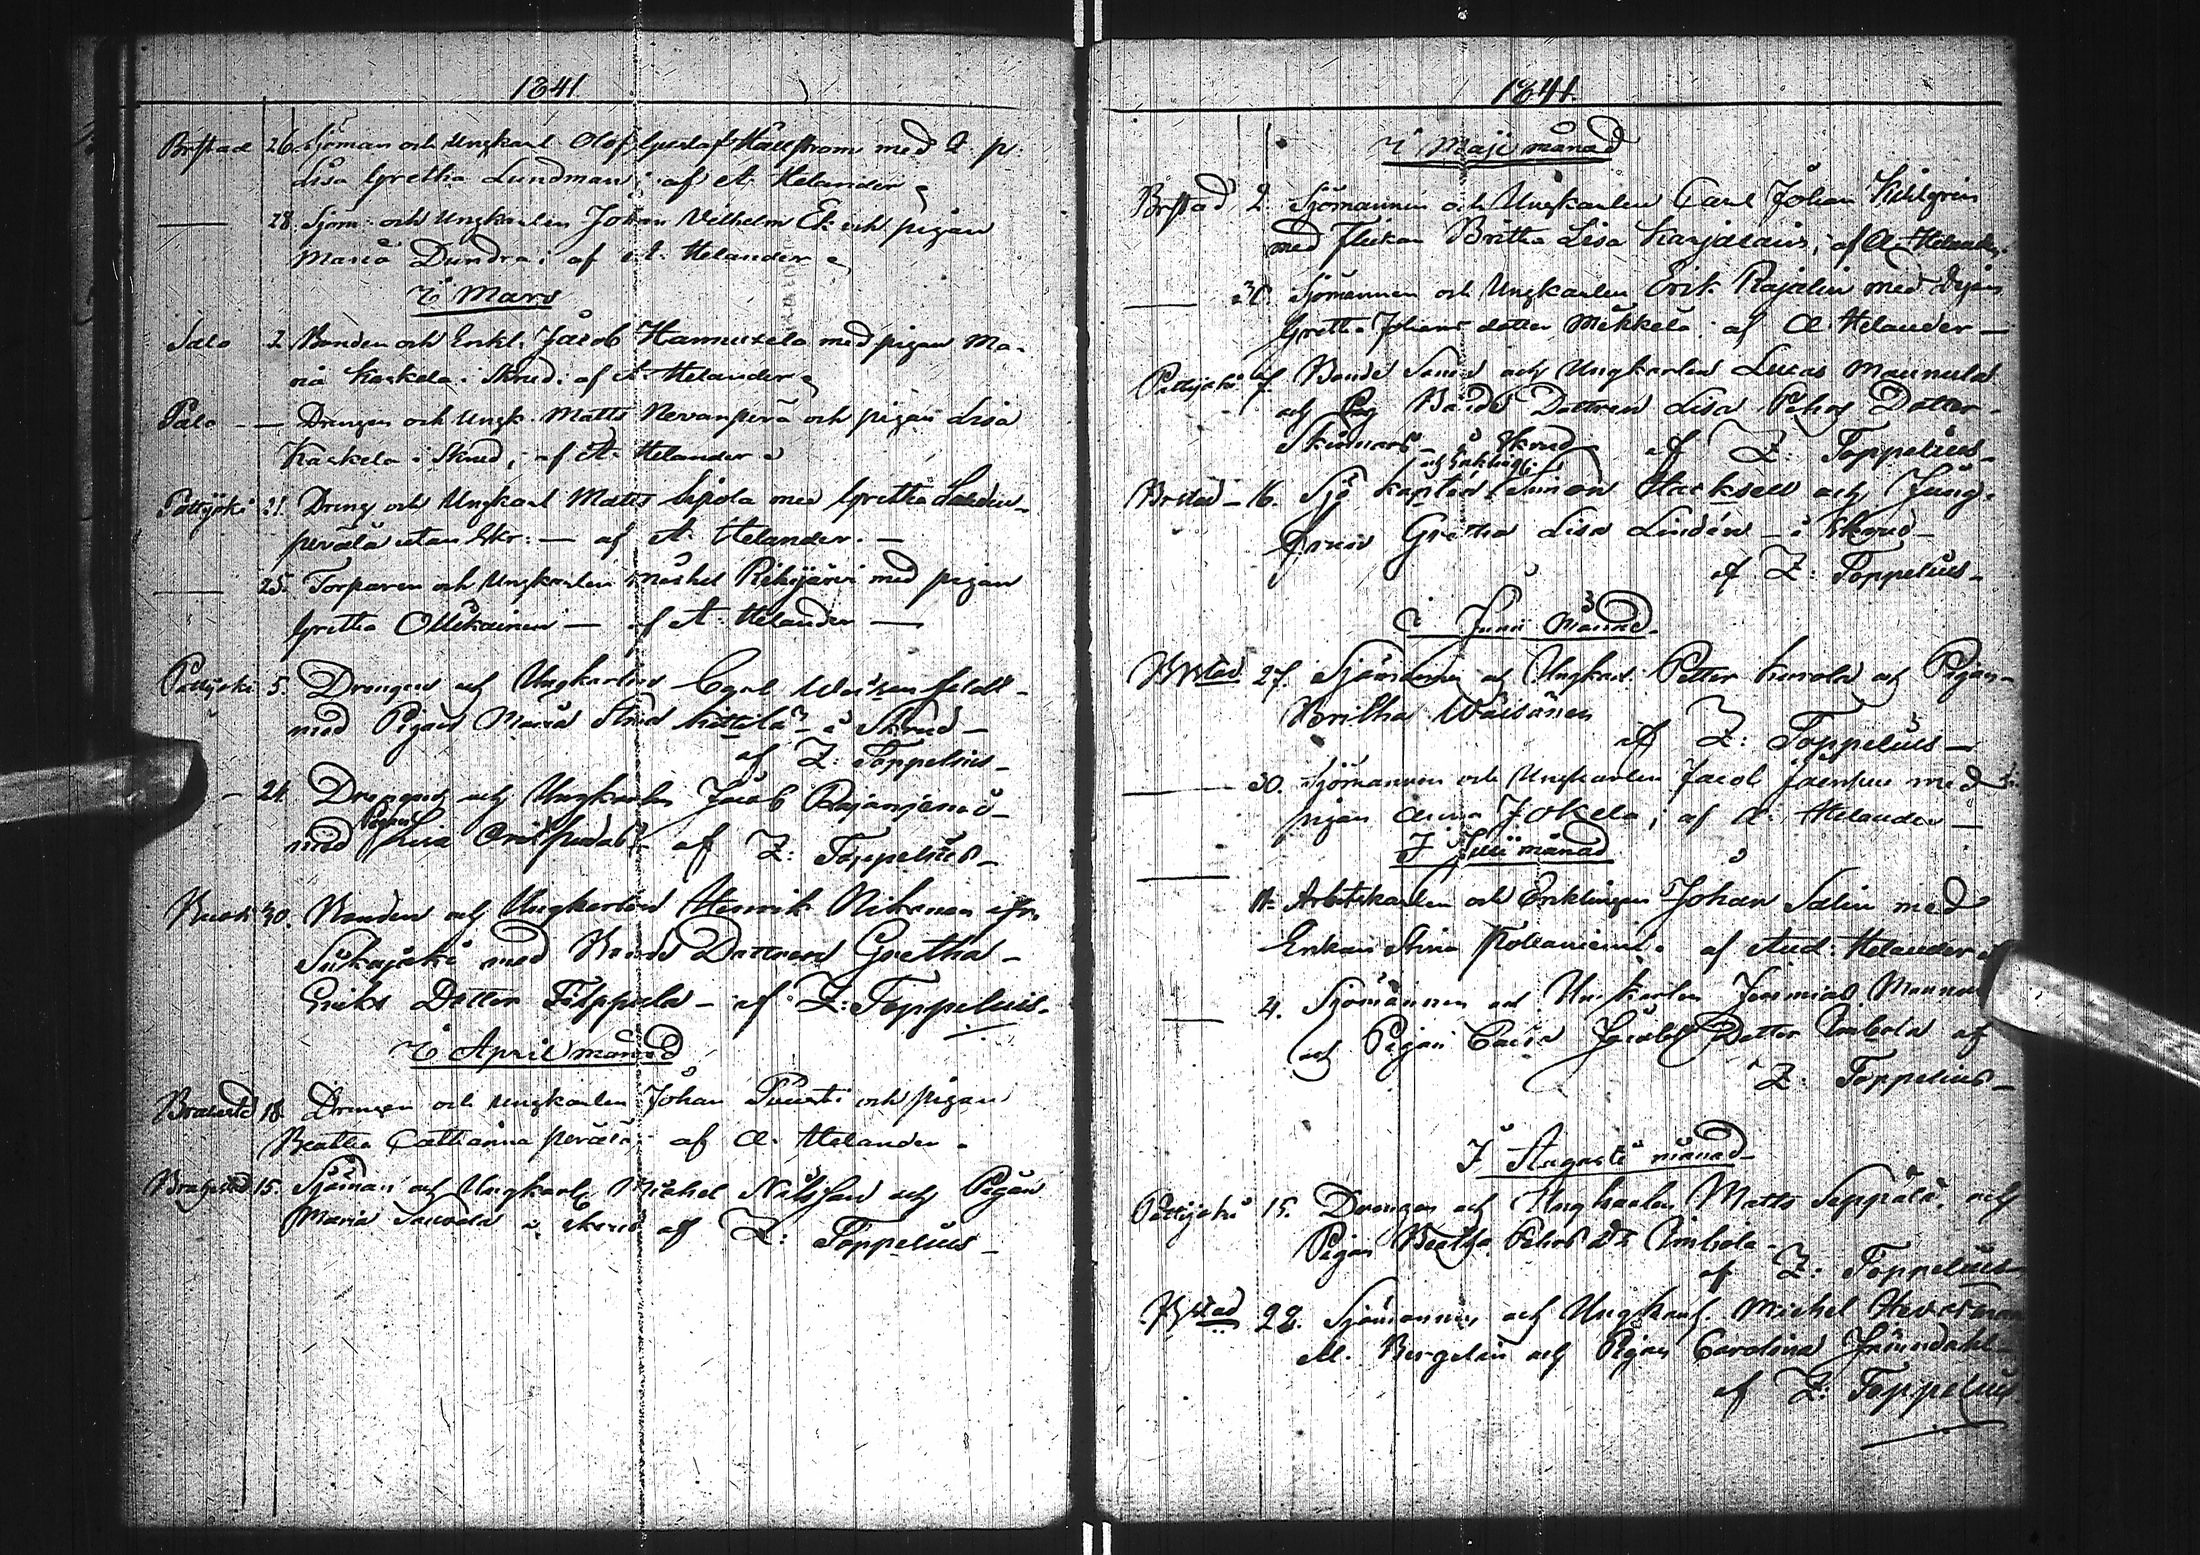 1841.
Brstad 26. Sjöman och Ungkarl Olof Gustaf Hällström med d. p.
Lisa Gretha Lundman; af A. Helander
— 28. Sjöm: och Ungkarlen Johan Vilhelm Ek och pigan
Maria Dundra; af A. Helander
i Mars
Salo 2 Bonden och Enkl. Jacob Hannuxela med pigan Ma-
ria Kaskela i Skrud; af A. Helander
Palo - — Drengen och Ungk. Matts Nevanperä och pigan Lisa
Kaskela i Skrud; af A. Helander
Pattijoki 21. Dreng och Ungkarl Matts Sipola med Gretha
perälä utan Skr: — af A. Helander. —
— 25. Torparen och Ungkarlen Michel Rihijärvi med pigan
Gretha Ollikainen — af A. Helander —
Pattijoki 5. Drengen och Ungkarlen Carl
med Pigan Maria Stina Kittilä i Skrud —
af Z: Toppelius —
— 24. Drengen och Ungkarlen Jacob
med Pigan Lisa af Z: Toppelius —
30. Bonden och Ungkarlen Henrik Nikanen ifrn
Siikajoki med Bonde Dottren Gretha
Eriks Dotter Tåppela — af Z: Toppelius.
i April månad
Brahestd 18. Drengen och Ungkarlen Johan Puusti och pigan
Beatha Catharina perälä; af A. Helander.
Brahestad 15. Sjöman och Ungkarl Michel och Pigan
Maria Sauvola i Skrud af Z: Toppelius —
1841.
i Maji månad
Brstad 2. Sjömannen och Ungkarlen Carl Johan Kihlgrén
med flickan Britha Lisa Karjalain; af A. Helander.
— 30. Sjömannen och Ungkarlen Erik Rajalin med Pigan
Gretha Johans dotter Mikkela af A. Helander —
Pattijoki 7. Bonde Sonen och Ungkarlen Lucas Maunula
och Bonde Dottren Lisa Pehrs Dotter
i Skrud af Z: Toppelius —
och Enkling
Brstad — 16. Sjö Kapten Simon Hacksell och Jung-
frun Gretha Lisa Lindén — i Skrud —
af Z: Toppelius —
i Junii Månad.
Brstad 27. Sjömannen och Ungkarl Petter och Pigan
Britha Wäisänen
af Z: Toppelius —
— 30. Sjömannen och Ungkarlen Jacob med
pigan Anna Jokela; af A. Helander —
I Julii månad
— 11. Arbetskarlen och Enklingen Johan Salin med
Enkan Stina af And. Helander
— 4. Sjömannen och Ungkarlen Jeremias
och Pigan Caisa Jacobs Dotter Umbola af
Z: Toppelius —
I Augusti månad
Pattijoki 15. Drengen och Ungkarlen Matts Seppälä och
Pigan Beatha Pehrs Dr
af Z: Toppelius
Brstad 22. Sjömannen och Ungkarl. Michel
M. Bergelin och Pigan Carolina
af Z: Toppelius